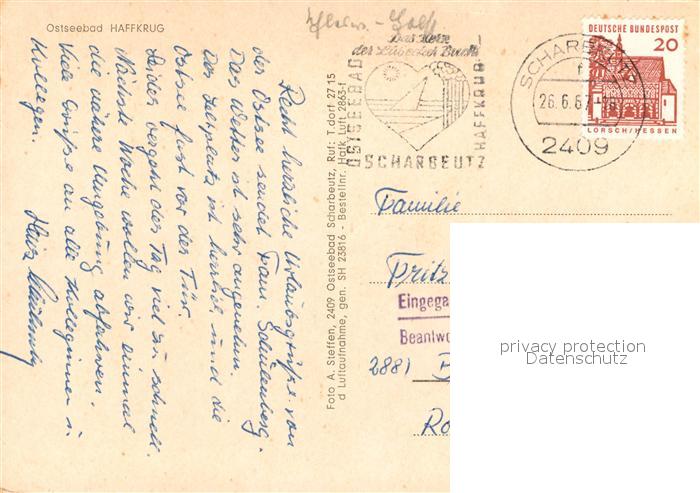 Ostseebad HAFFKRUG
Recht herzliche Urlaubsgrüße von
der Ostsee sendet Fam. Schulenberg.
Das Wetter ist sehr angenehm.
Der Zeltplatz ist herrlich und die
Ostsee fast vor der Tür.
Leider vergeht der Tag viel zu schnell.
Nächste Woche wollen wir einmal
die nähere Umgebung abfahren.
Viele Grüße an alle Kolleginnen u.
Kollegen.
Foto A. Steffen, 2409 Ostseebad Scharbeutz, Ruf: T.dorf 27 15
d Luftaufnahme, gen. SH 23816 - Bestellnr. Hafk Luft 2863-f
Schlesw.-Holst
Das Herz
der Lübecker Bucht
OSTSEEBAD
HAFFKRUG-
SCHARBEUTZ
SCHARBEUTZ
f
26.6.67
2409
DEUTSCHE BUNDESPOST
20
LORSCH/HESSEN
Familie
Fritz
Eingega
Beantwo
2881
privacy protection
Datenschutz